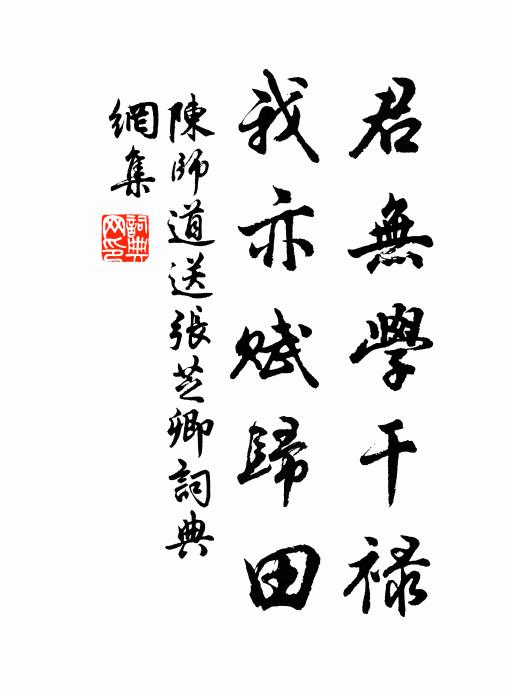 君無學干祿
我亦賦歸田
陳師道送張芝卿詞典
網集
詞典
网印